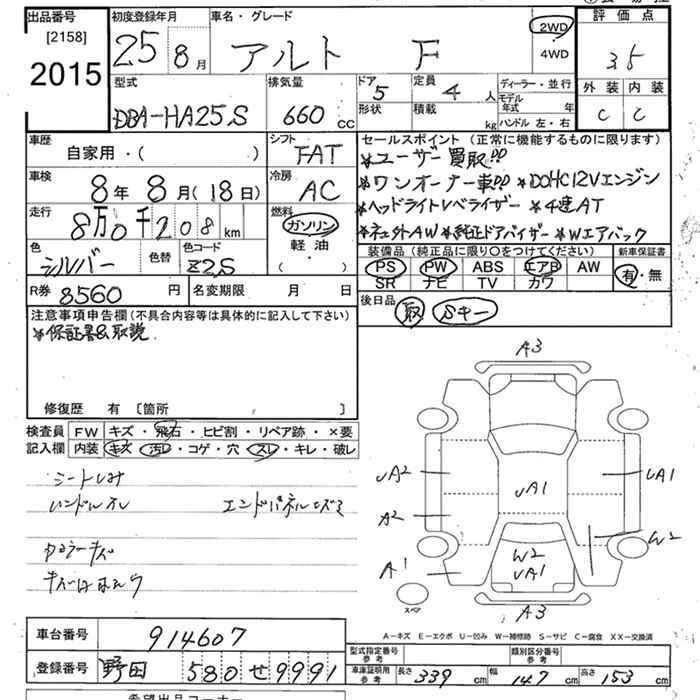 出品番号 初度登録年月 車名・グレード 評価点
[2158] 2015
25 8月 アルト F 2WD 4WD 3.5
型式 排気量 ドア 定員 ディーラー・並行 外装 内装
DBA-HA25S 660cc 5 4人 モデル年式 年 C C
形状 積載 kg ハンドル 左・右
車歴 シフト セールスポイント (正常に機能するものに限ります)
自家用・( ) FAT *ユーザー買取!!
車検 冷房 *ワンオーナー車!! *DOHC12Vエンジン
8年8月(18日) AC *ヘッドライトレベライザー *4速AT
走行 燃料 *社外AW *純正ドアバイザー *Wエアバック
8万0千208km ガソリン 軽油 ( )
色 色替 色コード 装備品 (純正品に限り○をつけてください) 新車保証書
シルバー Z2S PS PW ABS エアB AW 有・無
SR ナビ TV カワ
R券 8560円 名変期限 月 日 後日品 取 Sキー
注意事項申告欄(不具合内容等は具体的に記入して下さい)
*保証書&取説
修復歴 有 〔箇所 〕
検査員 FW キズ・飛石・ヒビ割・リペア跡・×要
記入欄 内装 キズ・汚レ・コゲ・穴・スレ・キレ・破レ
シートしみ
ハンドルスレ エンドパネルキズミ
A3
UA2 UA1 UA1
A2 W2
A1 W2 UA1
スペア A3
A-キズ E-エクボ U-凹み W-補修跡 S-サビ C-腐食 XX-交換済
車台番号 914607
型式指定番号 参考 類別区分番号 参考
登録番号 野田 580 せ 9991
車庫証明用 参考 長さ 339cm 幅 147cm 高さ 153cm
希望出品コーナー